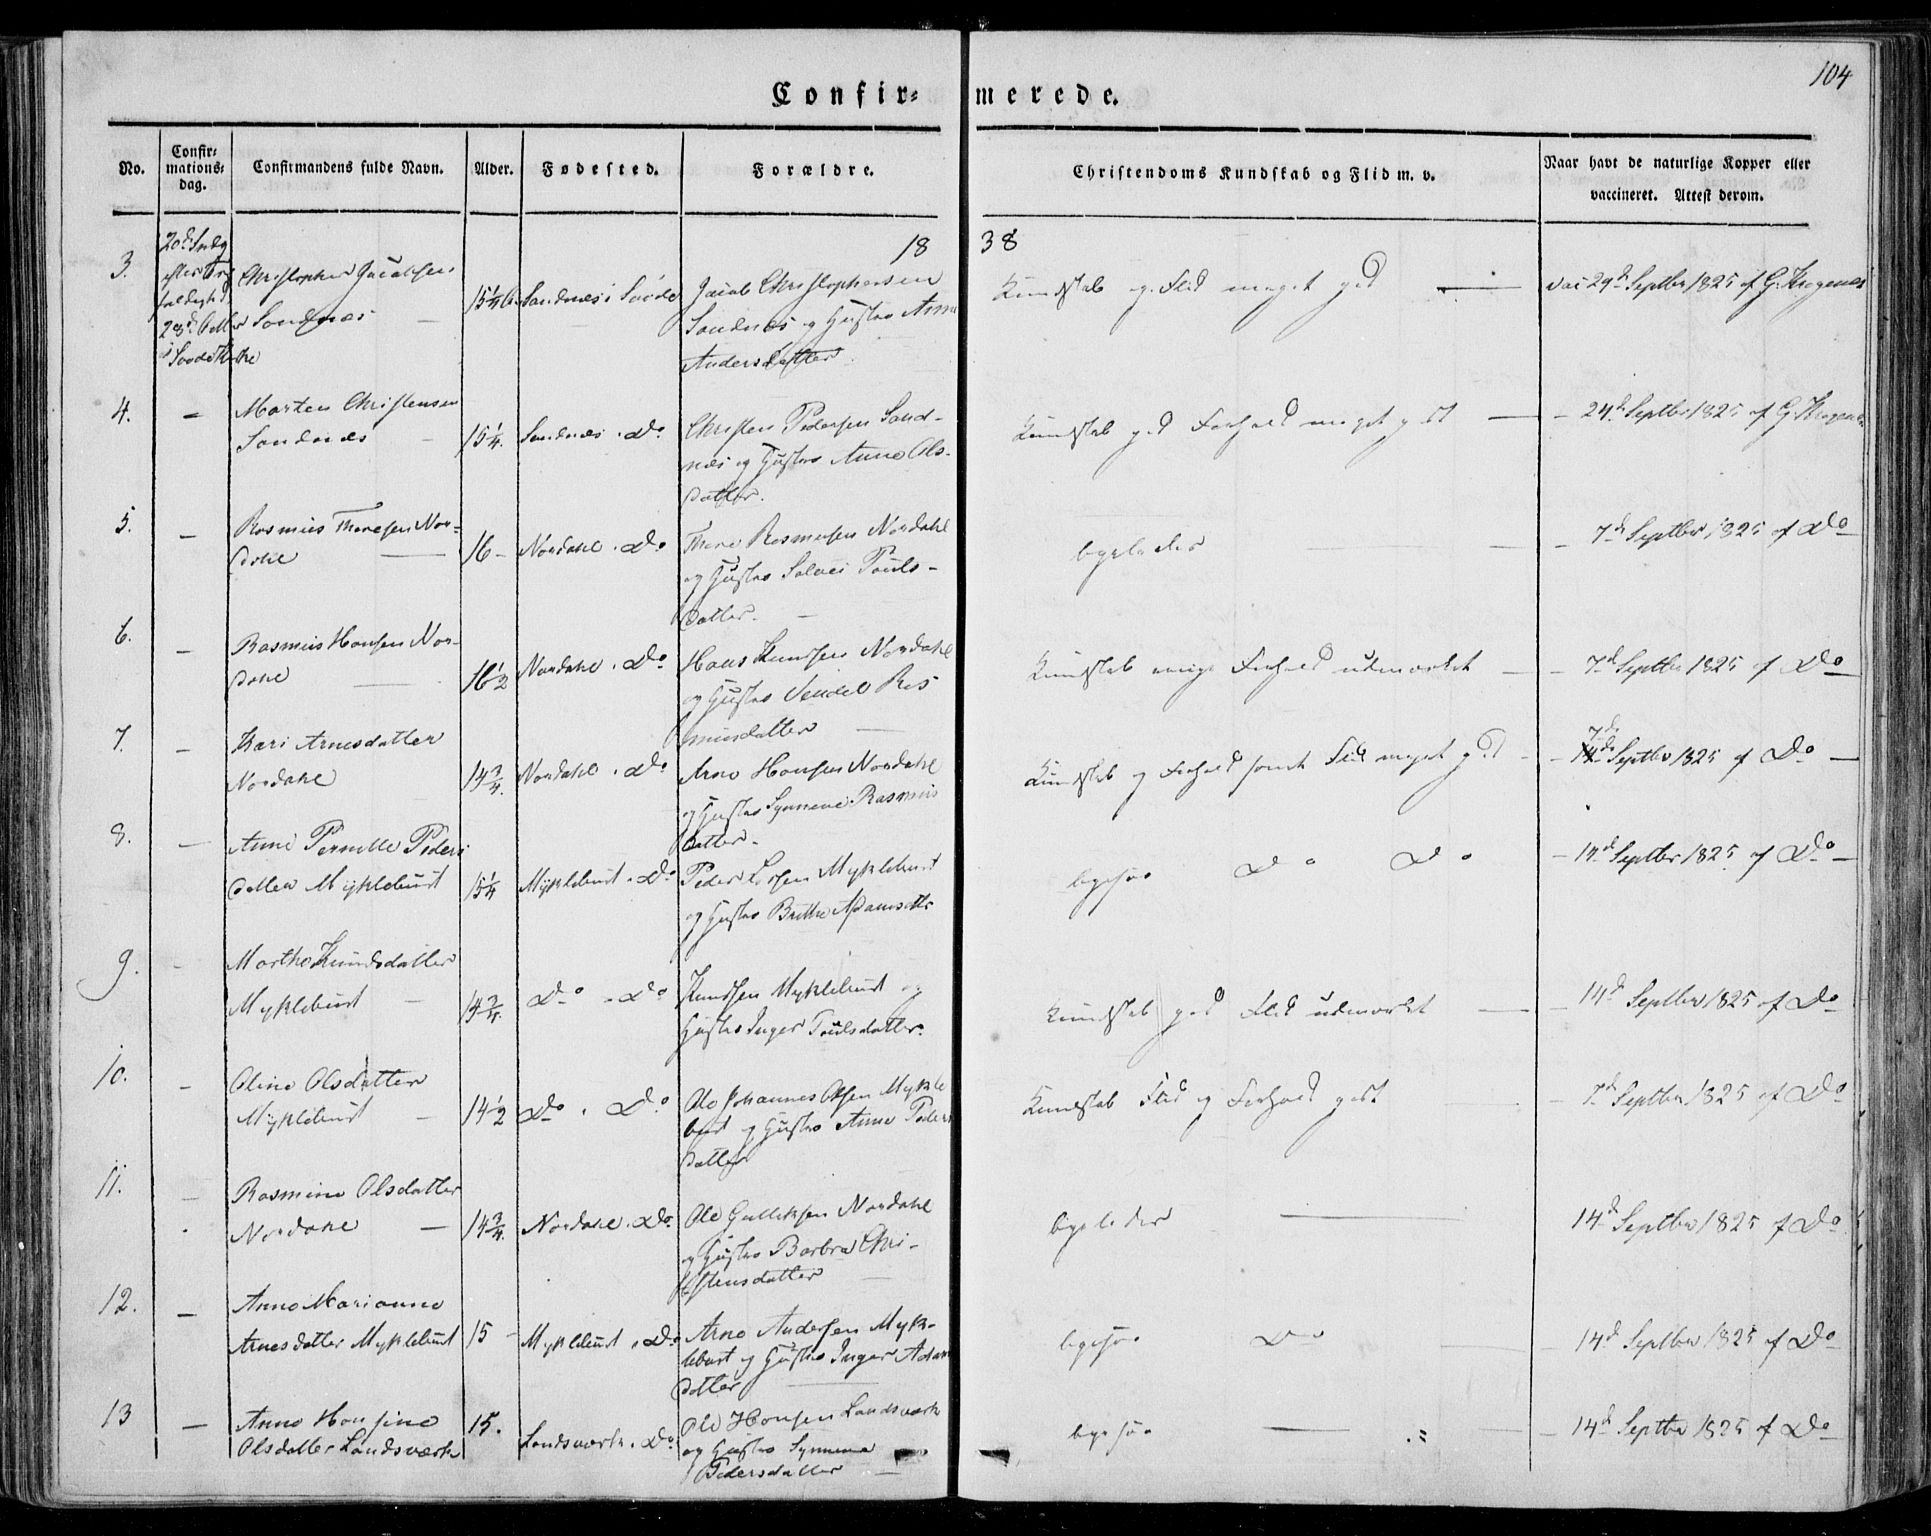 104
Confir=merede.
No.
Confir=
mations=
dag.
Confirmandens fulde Navn.
Alder.
Fødested.
Forældre.
Christendoms Kundskab og Flid m. v.
Naar havt de naturlige Kopper eller
vaccineret. Attest derom.
1838
3.
20de Søndg
efter Tre
foldighd
28de
i Kirke
Christopher Jacobsen
Sandnæs —
15 1/4
Sandnæs i
Jacob Christophersen
Sandnæs og Hustro Anne
Andersdatter
Kundskab og Flid meget god —
vac 29de Septbr 1825 af G. Krogenæs
4.
—
Morten Christensen
Sandnæs —
15 1/4.
Sandnæs . Do
Christen Pedersen Sand-
næs og Hustro Anne Ols-
datter.
Kundskab god Forhold meget godt —
- 24de Septbr 1825 af G. Krogenæs
5.
—
Rasmus Thoresen Nor=
dahl —
16 -
Nordahl . Do
Thore Rasmusen Nordahl
og Hustro Solvei Pouls-
datter. —
ligeledes — —
- 7de Septbr 1825 af Do
6.
—
Rasmus Hansen Nor-
dahl —
16 1/2
Nordahl . Do
Hans Knudsen Nordahl
og Hustro Sendel Ras
musdatter —
Kundskab Forhold udmærket —
- 7de Septbr 1825 af Do
7.
—
Kari Arnesdatter
Nordahl
14 3/4.
Nordahl . Do
Arne Hansen Nordahl
og Hustro Synneve Rasmus
datter-
Kundskab og Forhold samt Flid meget god -
7de
- Septbr 1825 af Do —
8.
—
Anne Pernille Peders
datter Myklebust
15 1/4
Myklebust . Do
Peder Larsen Myklebust
og Hustro Brithe Adamsdtr
ligesaa Do Do
- 14de Septbr 1825 af Do —
9.
-
Marthe Knudsdatter
Myklebust —
14 3/4.
Do . Do
Knudsen Myklebust og
Hustro Inger Poulsdatter.
Kundskab god Flid udmærket —
- 14d Septbr 1825 af Do
10.
—
Oline Olsdatter
Myklebust —
14 1/2
Do . Do
Ole Johannes Olsen Mykle
bust og Hustro Anne Peders
datter
Kundskab Flid og Forhold godt —
- 7d Septbr 1825 af Do
11.
—
Rasmine Olsdatter
Nordahl —
14 3/4.
Nordahl . Do
Ole Gulliksen Nordahl
og Hustro Barbra Chri-
stensdatter —
ligeledes —
14d Septbr 1825 af Do
12.
—
Anne Marianne
Arnesdatter Myklebust
15 -
Myklebust . Do
Arne Andersen Myk-
lebust og Hustro Inger Adams
datter —
ligesaa Do —
14d Septbr 1825 af Do
13
—
Anne Hansine
Olsdatter Landsværk
15.
Landsværk . Do
Ole Hansen Landsværk
og Hustro Synneva
Pedersdatter —
ligesaa —
- 14d Septbr 1825 af Do